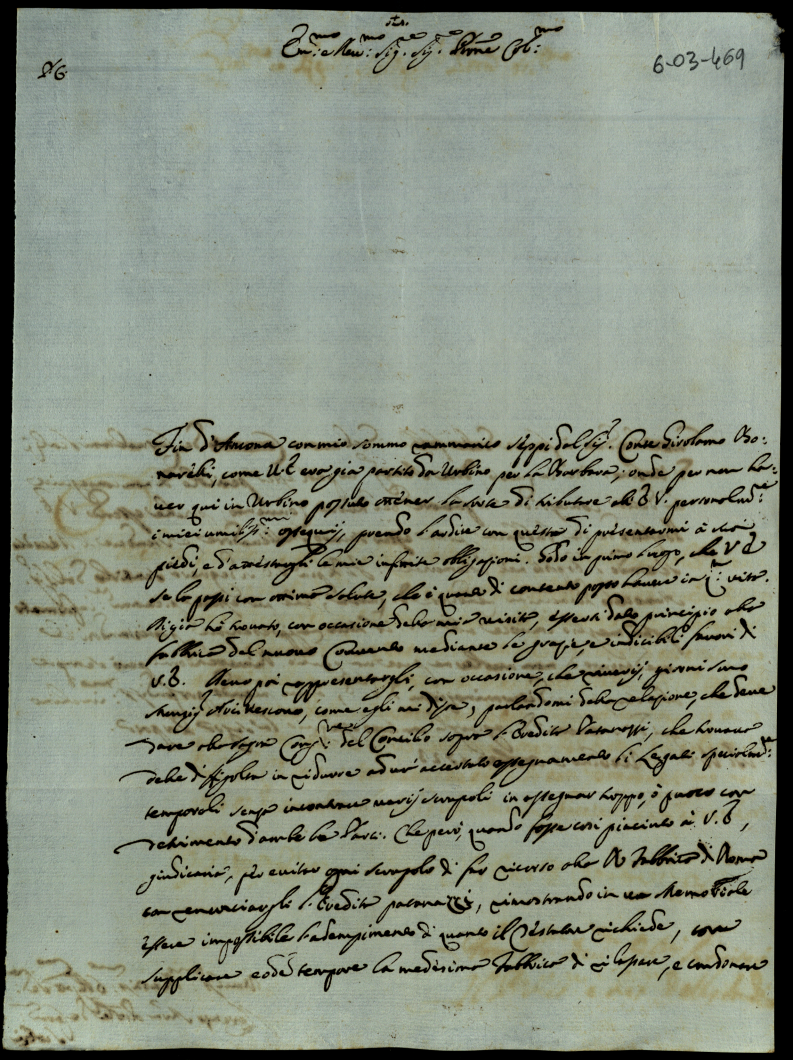 86
6-03-469
Em:mo e Rev:mo Sig.re Sig.re Prone Col:mo
Fin d'Ancona con mio sommo rammarico seppi dal Sig.r Conte Girolamo Bo:
narelli, come V.E. era gia partita da Urbino per la Barbara; onde per non ha:
uer qui in Urbino potuto ottener la sorte di tributare all'E.V. personalmte:
i miei umiliss:mi ossequij, prendo l'ardire con questa di presentarmi à suoi
piedi, e d'attestargli le mie infinite obligazioni. Godo in primo luogo, che V.E.
se la passi con ottima salute, che è quanto di contento posso hauere in q.ta vita.
Bigia hò trouato, con occasione della mia visita, essersi dato principio alla
fabbrica del nuouo Conuento mediante le grazie, e indicibili fauori di
V.E. Deuo poi rappresentargli, con occasione, che riuerij, giorni sono
Monsig.r Arciuescouo, come egli mi disse, parlandomi della relazione, che deue
dare alla Sagra Cong.ne del Concilio sopra l'Eredità Patanazzi, che trouaua
della difficoltà in ridurre ad un' accertato assegnamento li Legati specialmte:
temporali senza incontrare varij scrupoli in assegnar troppo, ò poco con
detrimento d'ambe le Parti. Che però, quando fosse così piaciuto à V.E.,
giudicaria, per euitar ogni scrupolo di far ricorso alla R. Fabbrica di Roma
con renunciargli l'Eredità patanazzi, rimostrando in un Memoriale
essere impossibile l'adempimento di quanto il Testatore richiede, come
supplicare eodem tempore la medesima Fabbrica di rilassare, e condonare